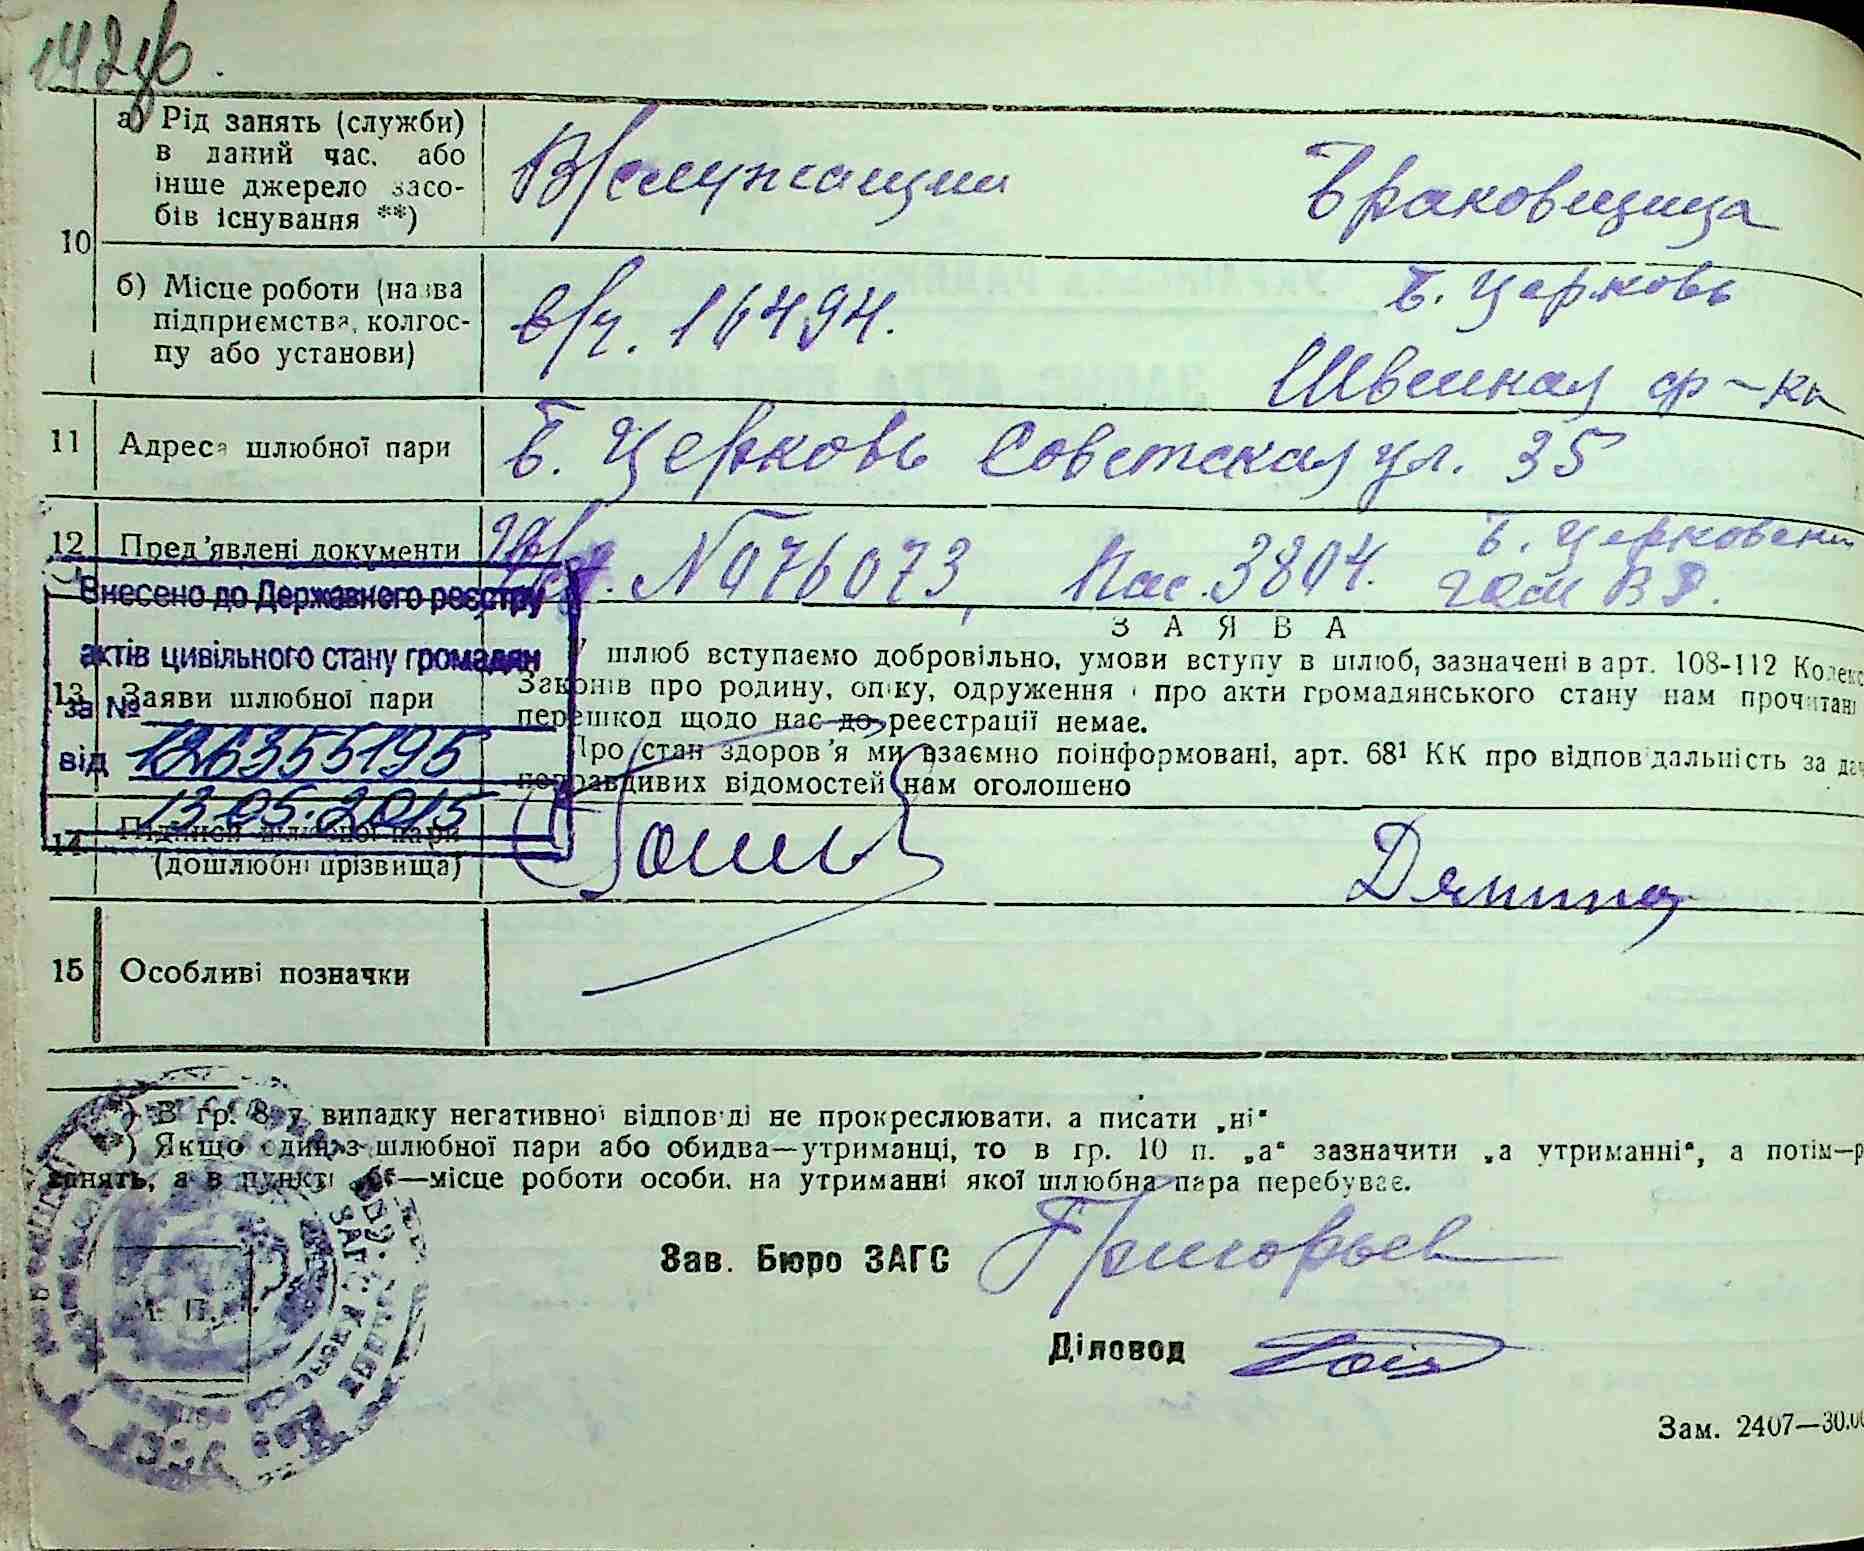 142об.
а) Рід занять (служби)
в даний час, або
інше джерело засо-
бів існування **)
В/служащий
Браковщица
10
б) Місце роботи (назва
підприємства, колгос-
пу або установи)
в/ч. 16494.
Б. Церковь
Швейная ф-ка
11 Адреса шлюбної пари
Б. Церковь Советская ул. 35
12 Пред'явлені документи
№ 076073, Пас. 3804. Б. Церковским
ВД.
Внесено до Державного реєстру
актів цивільного стану громадян
за №
від 126355195
13.05.2015
13 Заяви шлюбної пари
ЗАЯВА
У шлюб вступаємо добровільно, умови вступу в шлюб, зазначені в арт. 108-112 Кодекс
Законів про родину, опіку, одруження і про акти громадянського стану нам прочитані
перешкод щодо нас до реєстрації немає.
Про стан здоров'я ми взаємно поінформовані, арт. 68¹ КК про відповідальність за дач
неправдивих відомостей нам оголошено
14 Підписи шлюбної пари
(дошлюбні прізвища)
15 Особливі позначки
*) В гр. 8, у випадку негативної відповіді не прокреслювати, а писати „ні“
**) Якщо один з шлюбної пари або обидва—утриманці, то в гр. 10 п. „а“ зазначити „а утриманні“, а потім—р
занять, а в пункті „б“—місце роботи особи, на утриманні якої шлюбна пара перебуває.
Зав. Бюро ЗАГС Григорьев
Діловод
М. П.
Зам. 2407—30.00